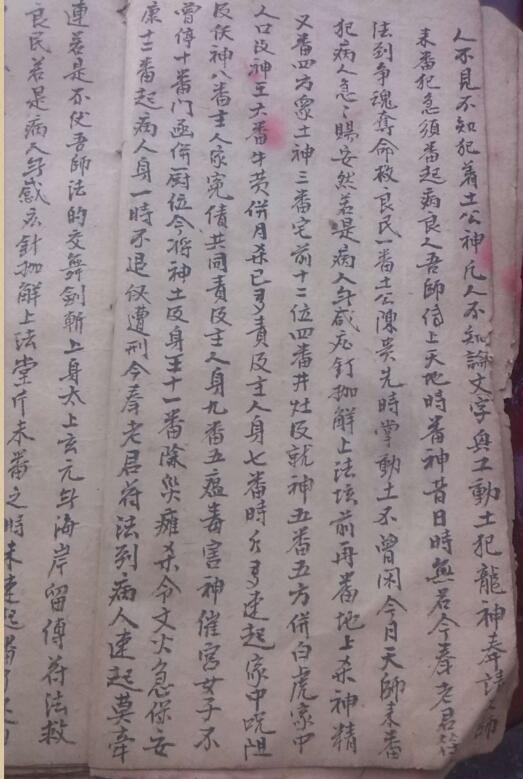 人不見不知犯着土公神凡人不知論文字與工動土犯龍神奉請師
来番犯急須番起病良人吾師侍上天地時番神昔日時無若今奉老君
法到争魂奪命救良民一番土公陳貴先時掌動土不曾闲今月天師来番
犯病人急々賜安然若是病人午感应釘抛解上法坛前再番地上杀神精
又番四方眾土神三番宅前十二位四番井灶及就神五番五方併白虎家中
人口及神王六番牛黄併月杀巳多責及主人身七番時久多速起家中咒咀
及伏神八番主人家冤債共同責及主人身九番五瘟毒害神催害女子不
曾停十番门丞併厨位今将神土及身王十一番除災瘫杀令文火急保安
康十二番起病人身一時不退伩遭刑今奉老君符法到病人速起莫牵
連若是不伏吾師法的交舞劍斬上身太上玄元午海岸留傳符法救
良民若是病人午感应針抛解上法堂片来番之時来速起